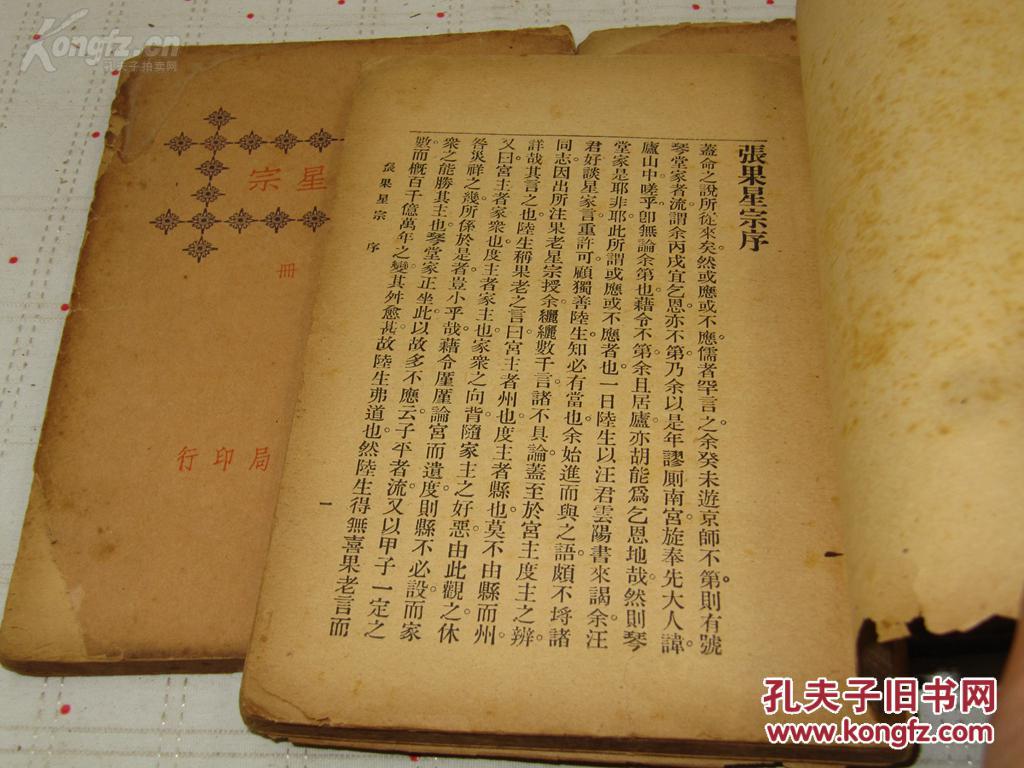 張果星宗序
蓋命之說所從來矣。然或應或不應。儒者罕言之。余癸未遊京師不第。則有號
琴堂家者流。謂余丙戌宜乞恩。亦不第。乃余以是年謬厠南宮。旋奉先大人諱。
廬山中。嗟乎。卽無論余第也。藉令不第。余且居廬。亦胡能爲乞恩地哉。然則琴
堂家是耶非耶。此所謂或應或不應者也。一日陸生以汪君雲陽書來謁余。汪
君好談星家言。重許可。顧獨善陸生。知必有當也。余始進而與之語。頗不埓諸
同志。因出所注果老星宗授余。纚纚數千言。諸不具論。蓋至於宮主度主之辨。
詳哉其言之也。陸生稱果老之言曰。宮主者州也。度主者縣也。莫不由縣而州。
又曰。宮主者家衆也。度主者家主也。家衆之向背隨家主之好惡。由此觀之。休
咎災祥之幾所係於是者。豈小乎哉。藉令厪厪論宮而遺度。則縣不必設。而家
衆之能勝其主也。琴堂家正坐此。以故多不應云。子平者流。又以甲子一定之
數。而槪百千億萬年之變。其舛愈甚。故陸生弗道也。然陸生得無喜果老言而
張果星宗 序
一
星宗
冊
局印行
Kongfz.cn
孔夫子拍卖网
孔夫子旧书网
www.kongfz.com